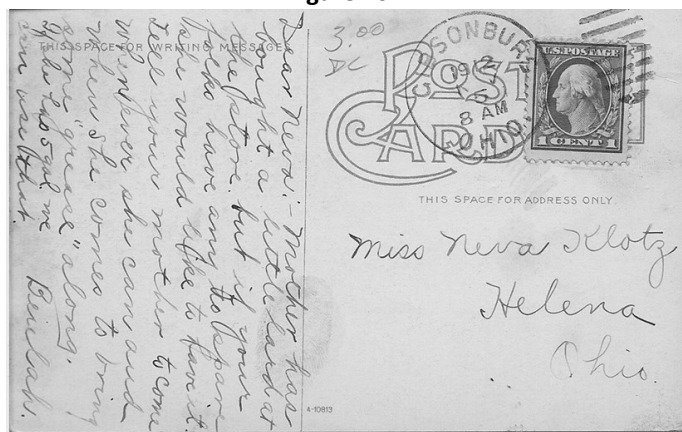 THIS SPACE FOR WRITING MESSAGES
Dear Neva:- Mother has
bought a little lard at
the store, but if your
folks have any to spare
she would like to have it.
Tell your mother to come
whenever she can and
when she comes to bring
some "grease" along.
If she has 5 gal we
can use that.
Beulah.
3.00
DC
POST
CARD
SONBUR
OHIO
8 AM
U.S. POSTAGE
1 CENT 1
THIS SPACE FOR ADDRESS ONLY.
Miss Neva Klotz
Helena
Ohio.
A-10813